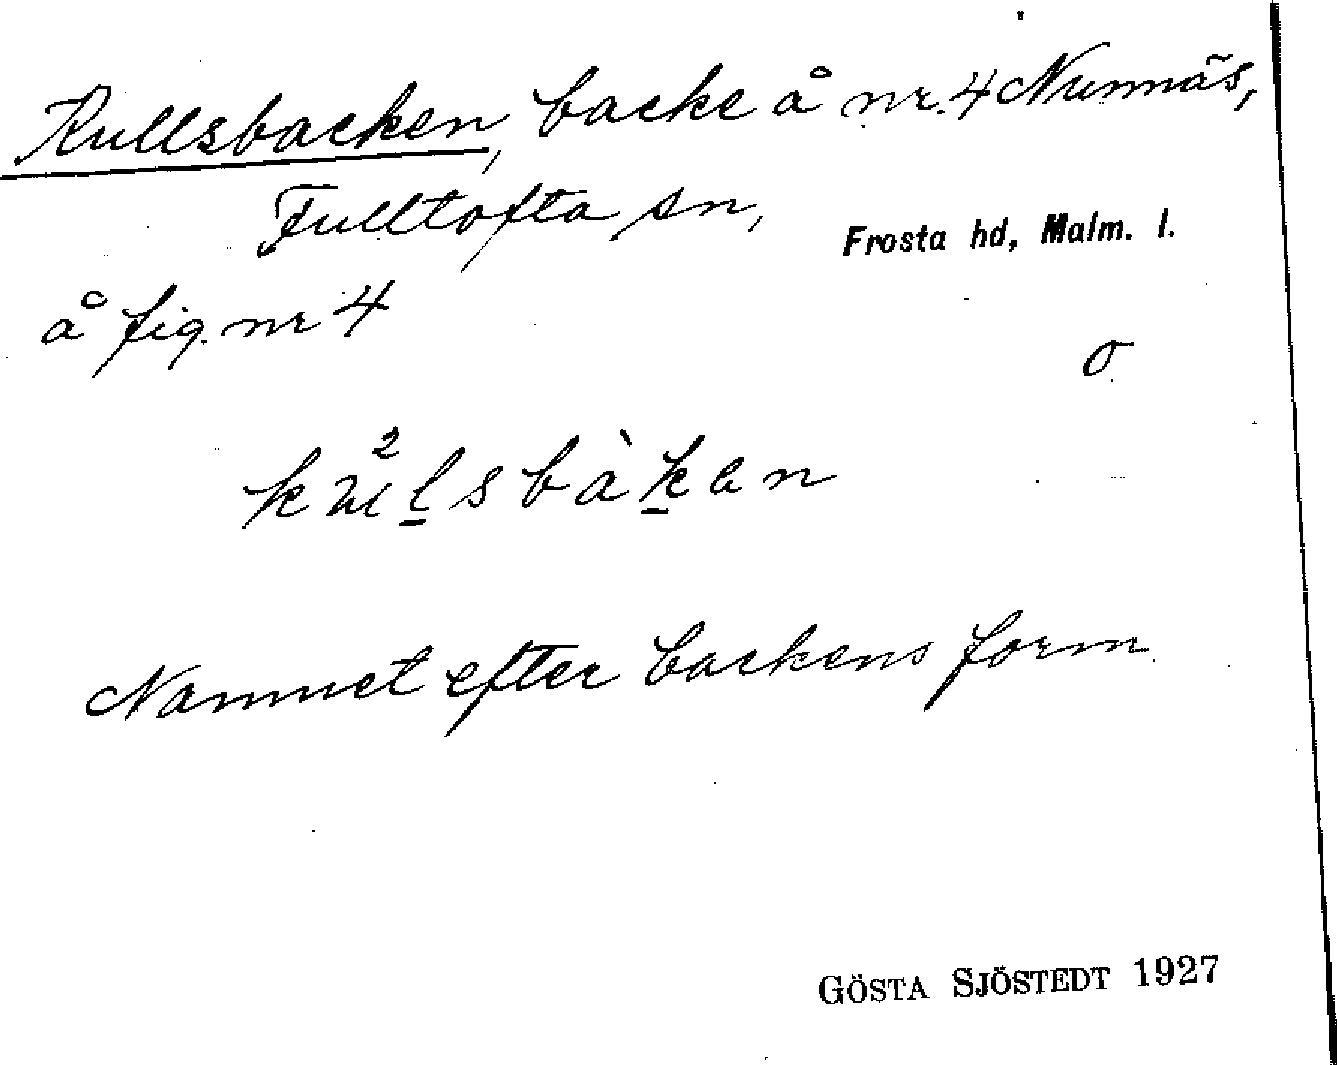 Kullsbacken, backe å nr. 4 Nunnäs,
Fulltofta sn,
Frosta hd, Malm. l.
å fig. nr 4
O
Namnet efter backens form
GÖSTA SJÖSTEDT 1927